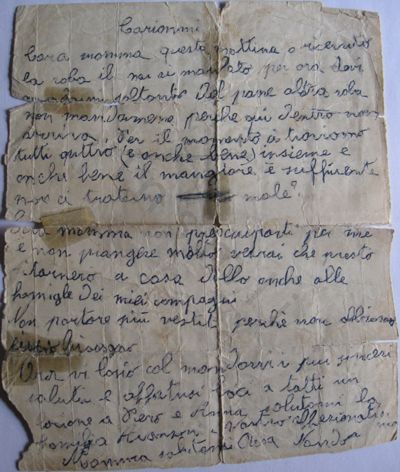 Carissimi
Cara mamma questa mattina o ricevuto
la roba il mi ai mandato per ora devi
soltanto del pane altra roba
non mandarmene perché qui dentro non
arriva. Per il momento ci troviamo
tutti quttro (e anche bene) insieme e
anchi bene il mangiare è sufficente
non ci tratano male.
Cara mamma non preocuparti per me
e non piangere molto verai che presto
tornero a casa dillo anche alle
famiglie dei miei compagni
Non portare più vestiti perché non abbiamo
Ora vi lascio col mandarvi i più sinceri
saluti e affetuosi baci a tutti un
bacione a Piero e Anna, salutami la
famiglia vostro
Mamma salutami